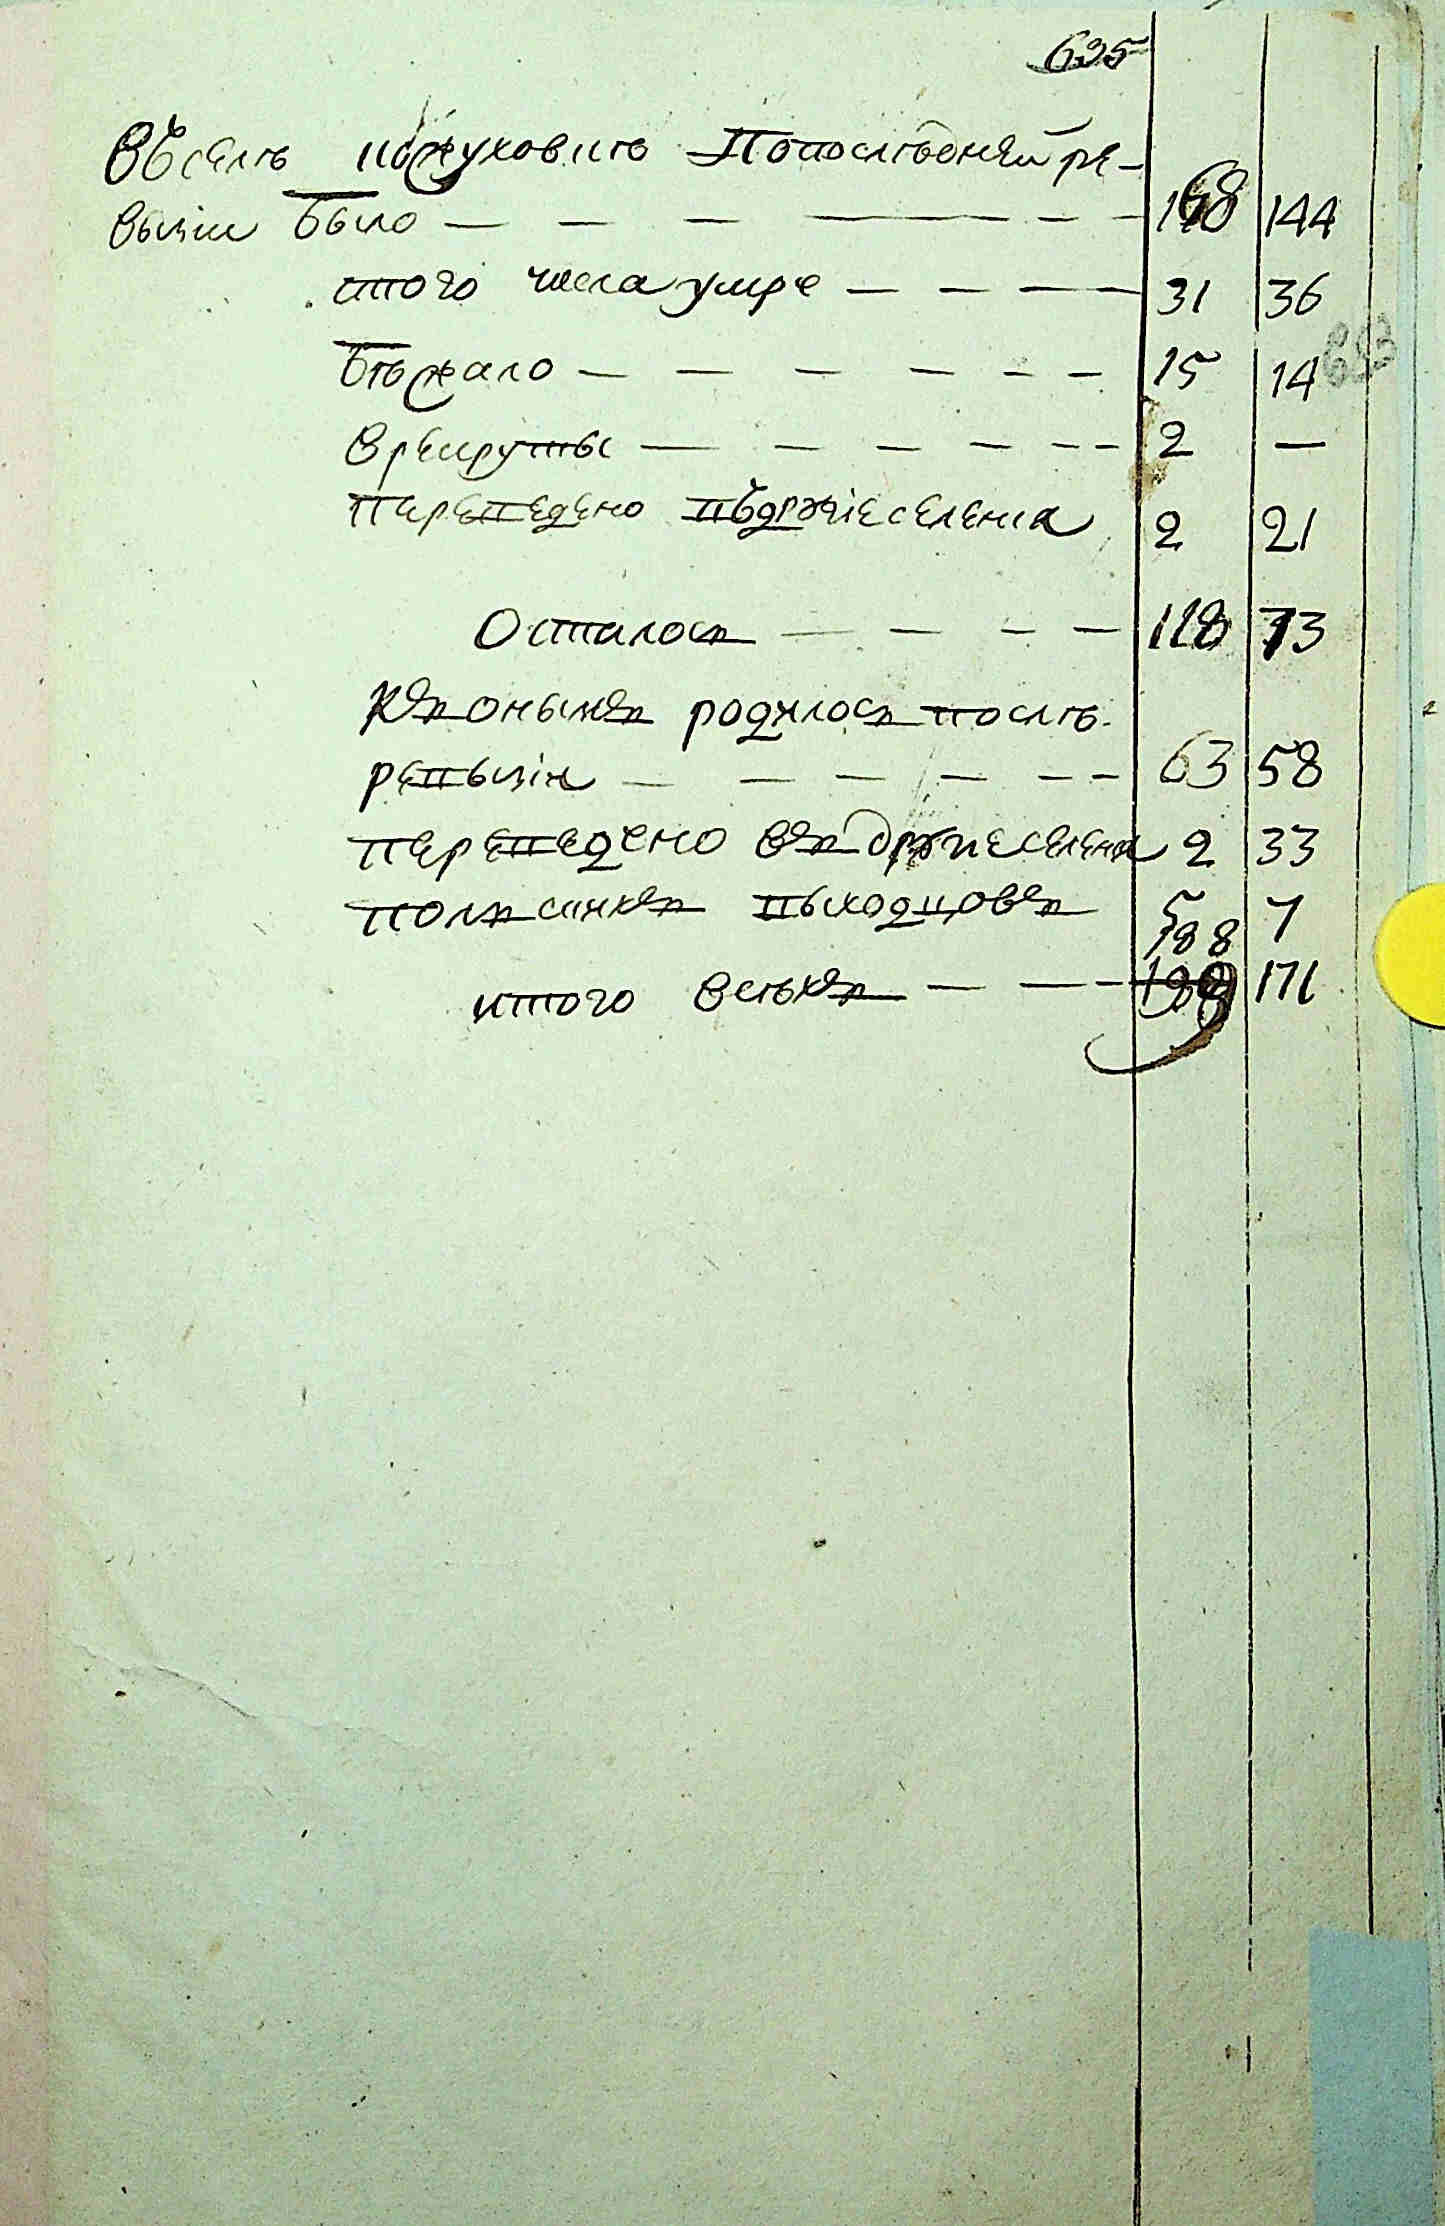 625
Въселѣ Кожуховкѣ По последней ре-
вызіи было — — — — — — 168 144
стого числа умре — — — — 31 36
бѣжало — — — — — — 15 14
в рекруты — — — — — — 2 —
переведено въ другіе селения 2 21
Осталось — — — — 118 73
къ онымъ родилось послѣ
ревызіи — — — — — — 63 58
переведено въ другие селения 2 33
польскихъ выходцовъ 5 7
188
итого всѣхъ — — — 171